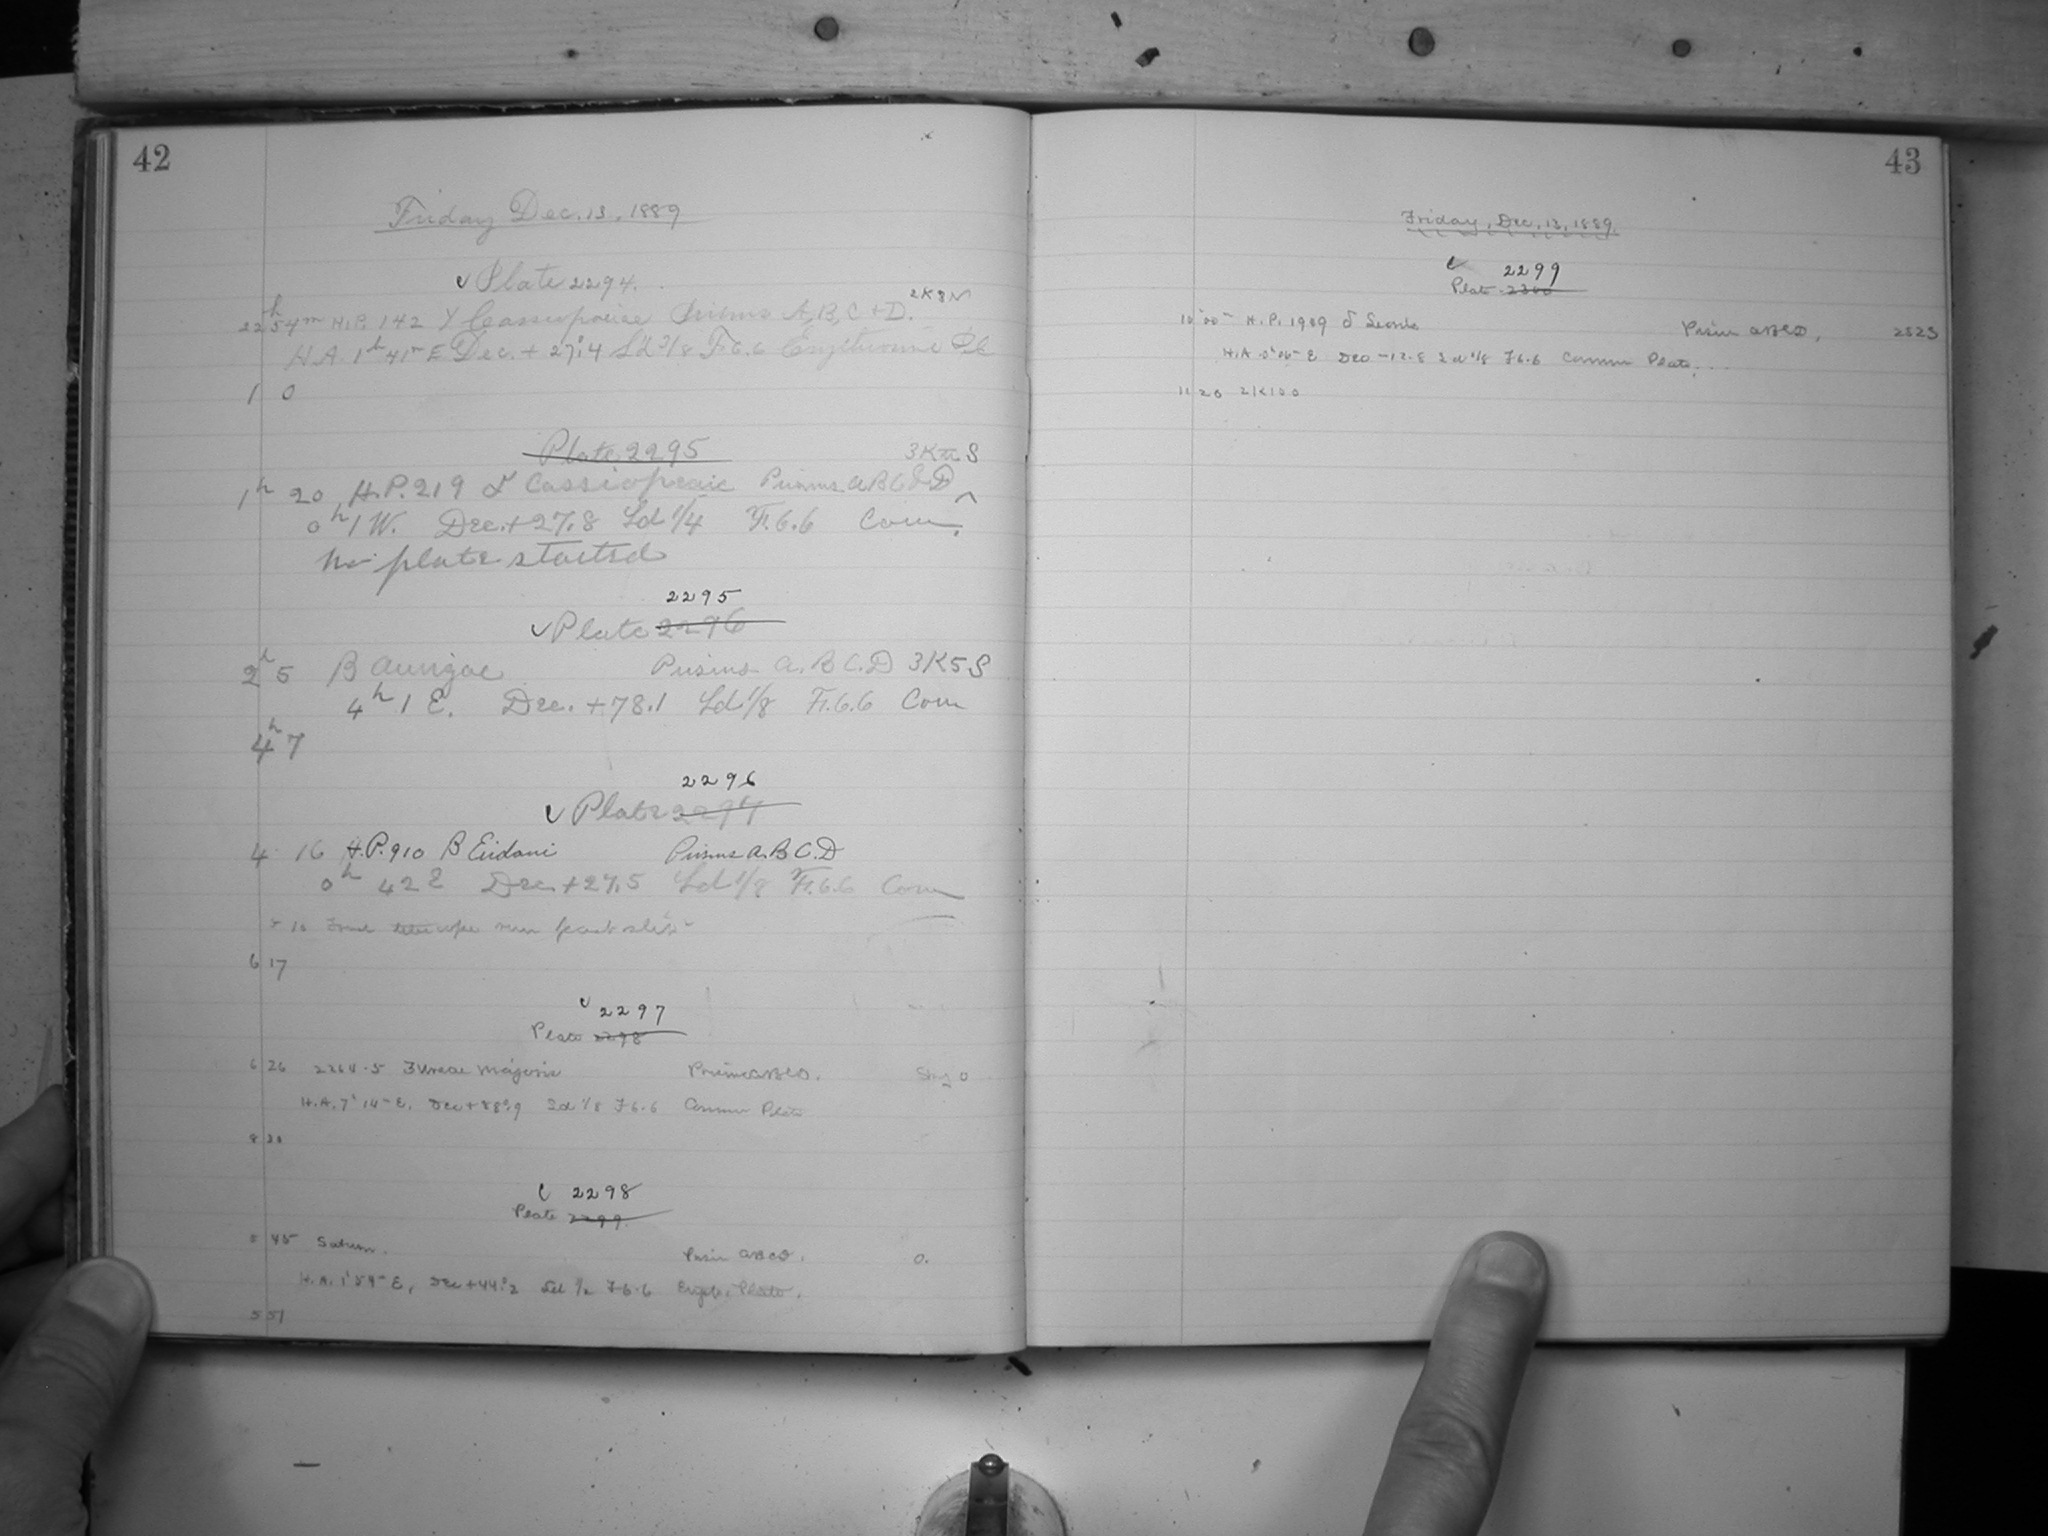 42
Friday Dec. 13, 1889
Plate 2294.
2K8N
22h 54m H.P. 142 γ Cassiopeiae Prisms A, B, C + D.
H.A. 1h 41m E Dec. + 27°.4 Sd 3/8 F. 6.6
1 0
Plate 2295
3Km S
1h 20 H.P. 219 δ Cassiopeiae Prisms A B C & D
0h 1 W. Dec. + 27.8 Sd 1/4 F. 6.6 Com.
No plate started
2295
Plate 2296
2h 5 β Aurigae Prisms A. B C. D 3K5 S
4h 1 E. Dec. + 78.1 Sd 1/8 F. 6.6 Com
4h 7
2296
Plate 2297
4 16 H.P. 910 β Eridani Prisms A. B C. D
0h 42 E Dec. + 27.5 Sd 1/8 F. 6.6 Com
5 10 Found telescope
6 17
2297
Plate 2298
6 26 Ursae Majoris Prism ABCD.
H.A. 7h 14m E, Dec + 88°.9 Sd 1/8 F 6.6 Common Plate
8 20
2298
Plate 2299
45 Saturn. Prism ABCD. 0.
H.A. 1h 59m E, Dec + 44°.2 Sd 1/2 F 6.6 Plate.
51
43
Friday, Dec, 13, 1889.
2299
Plate 2300
10h 00m H. P. 1989 δ Leonis Prism ABCD. 2523
H.A. E Dec -12.8 Sd 1/8 F 6.6 Common Plate.
11 20 2K100